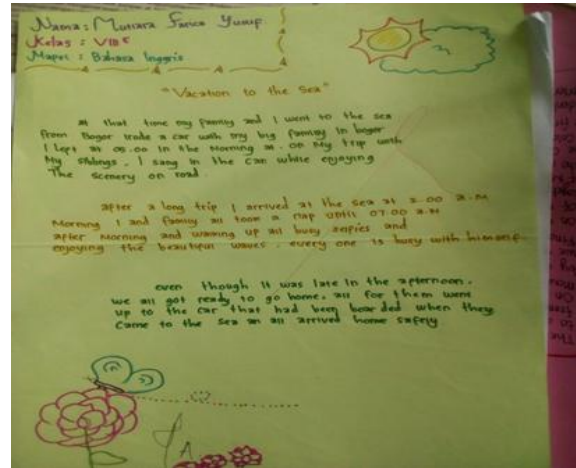 Nama : Mutiara Sarica Yusup
Kelas : VIII E
Mapel : Bahasa Inggris
"Vacation to the Sea"
at that time my family and I went to the sea
from Bogor trade a car with my big family in bogor
I Left at 05.00 in the Morning at. on My trip with
My siblings. I sang in the car while enjoying
The scenery on road.
after a long trip I arrived at the sea at 2.00 a.m
Morning I and family all took a nap until 07.00 a.m
after Morning and waking up all busy selfies and
enjoying the beautiful waves. every one is busy with himself
even though it was late in the afternoon.
we all got ready to go home. all for them went
up to the car that had been boarded when they
came to the sea an all arrived home safely